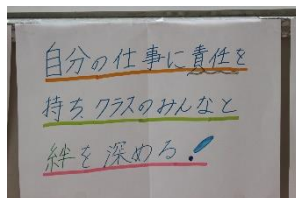 自分の仕事に責任を
持ち、クラスのみんなと
絆を深める!